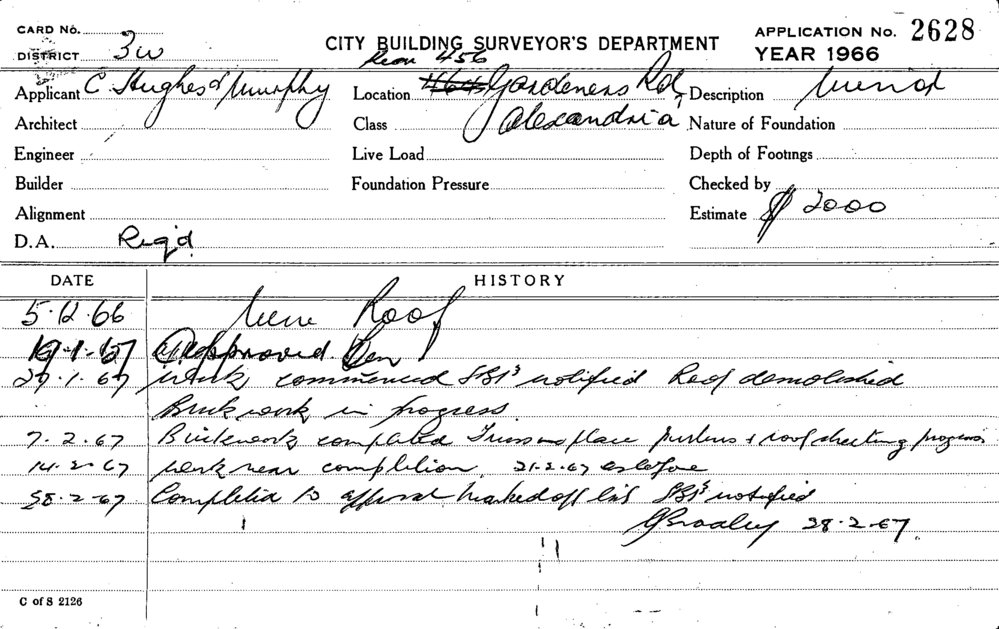 CARD No.
DISTRICT 3W
CITY BUILDING SURVEYOR'S DEPARTMENT
APPLICATION No. 2628
YEAR 1966
Applicant C Hughes & Murphy
Location 456 Gardeners Rd,
Description
Architect
Class Alexandria
Nature of Foundation
Engineer
Live Load
Depth of Footings
Builder
Foundation Pressure
Checked by
Alignment
Estimate $ 2000
D.A. Req'd
DATE HISTORY
5.12.66 Roof
19.1.67 Approved
27.1.67 work commenced notified Roof demolished
Brickwork in progress.
7.2.67 Brickwork completed place purlins & roof sheeting progress
14.2.67 work near completion. 21.2.67 as before
28.2.67 Completed to approval marked off list notified
28.2.67.
C of S 2126